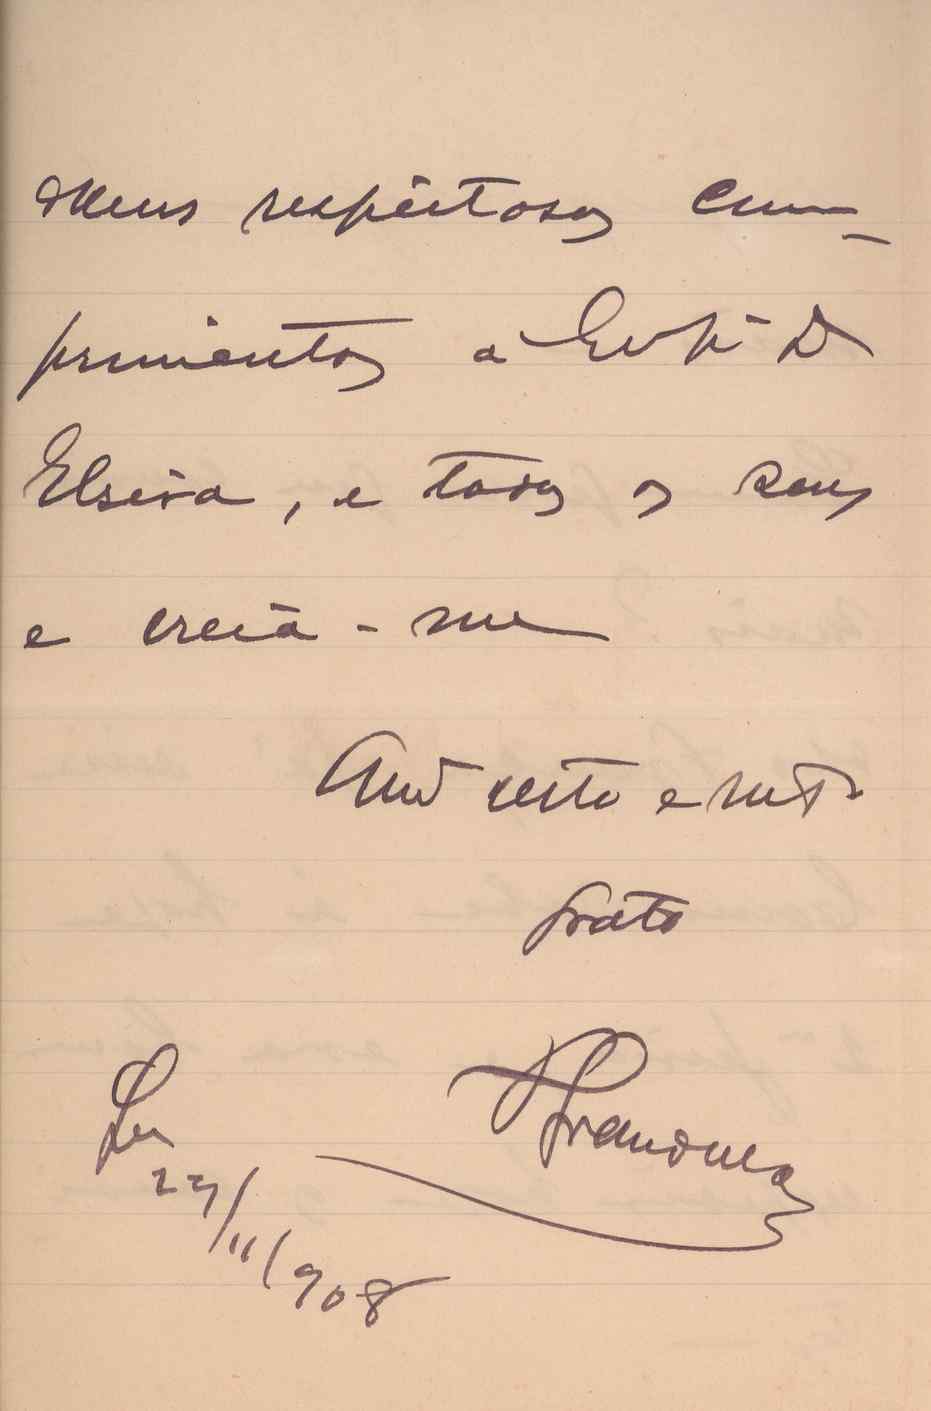 Meus respeitosos cum-
primentos a D
Elsira, e todos os seus
e creia-me
Amº certo e mtº
grato
27/11/908